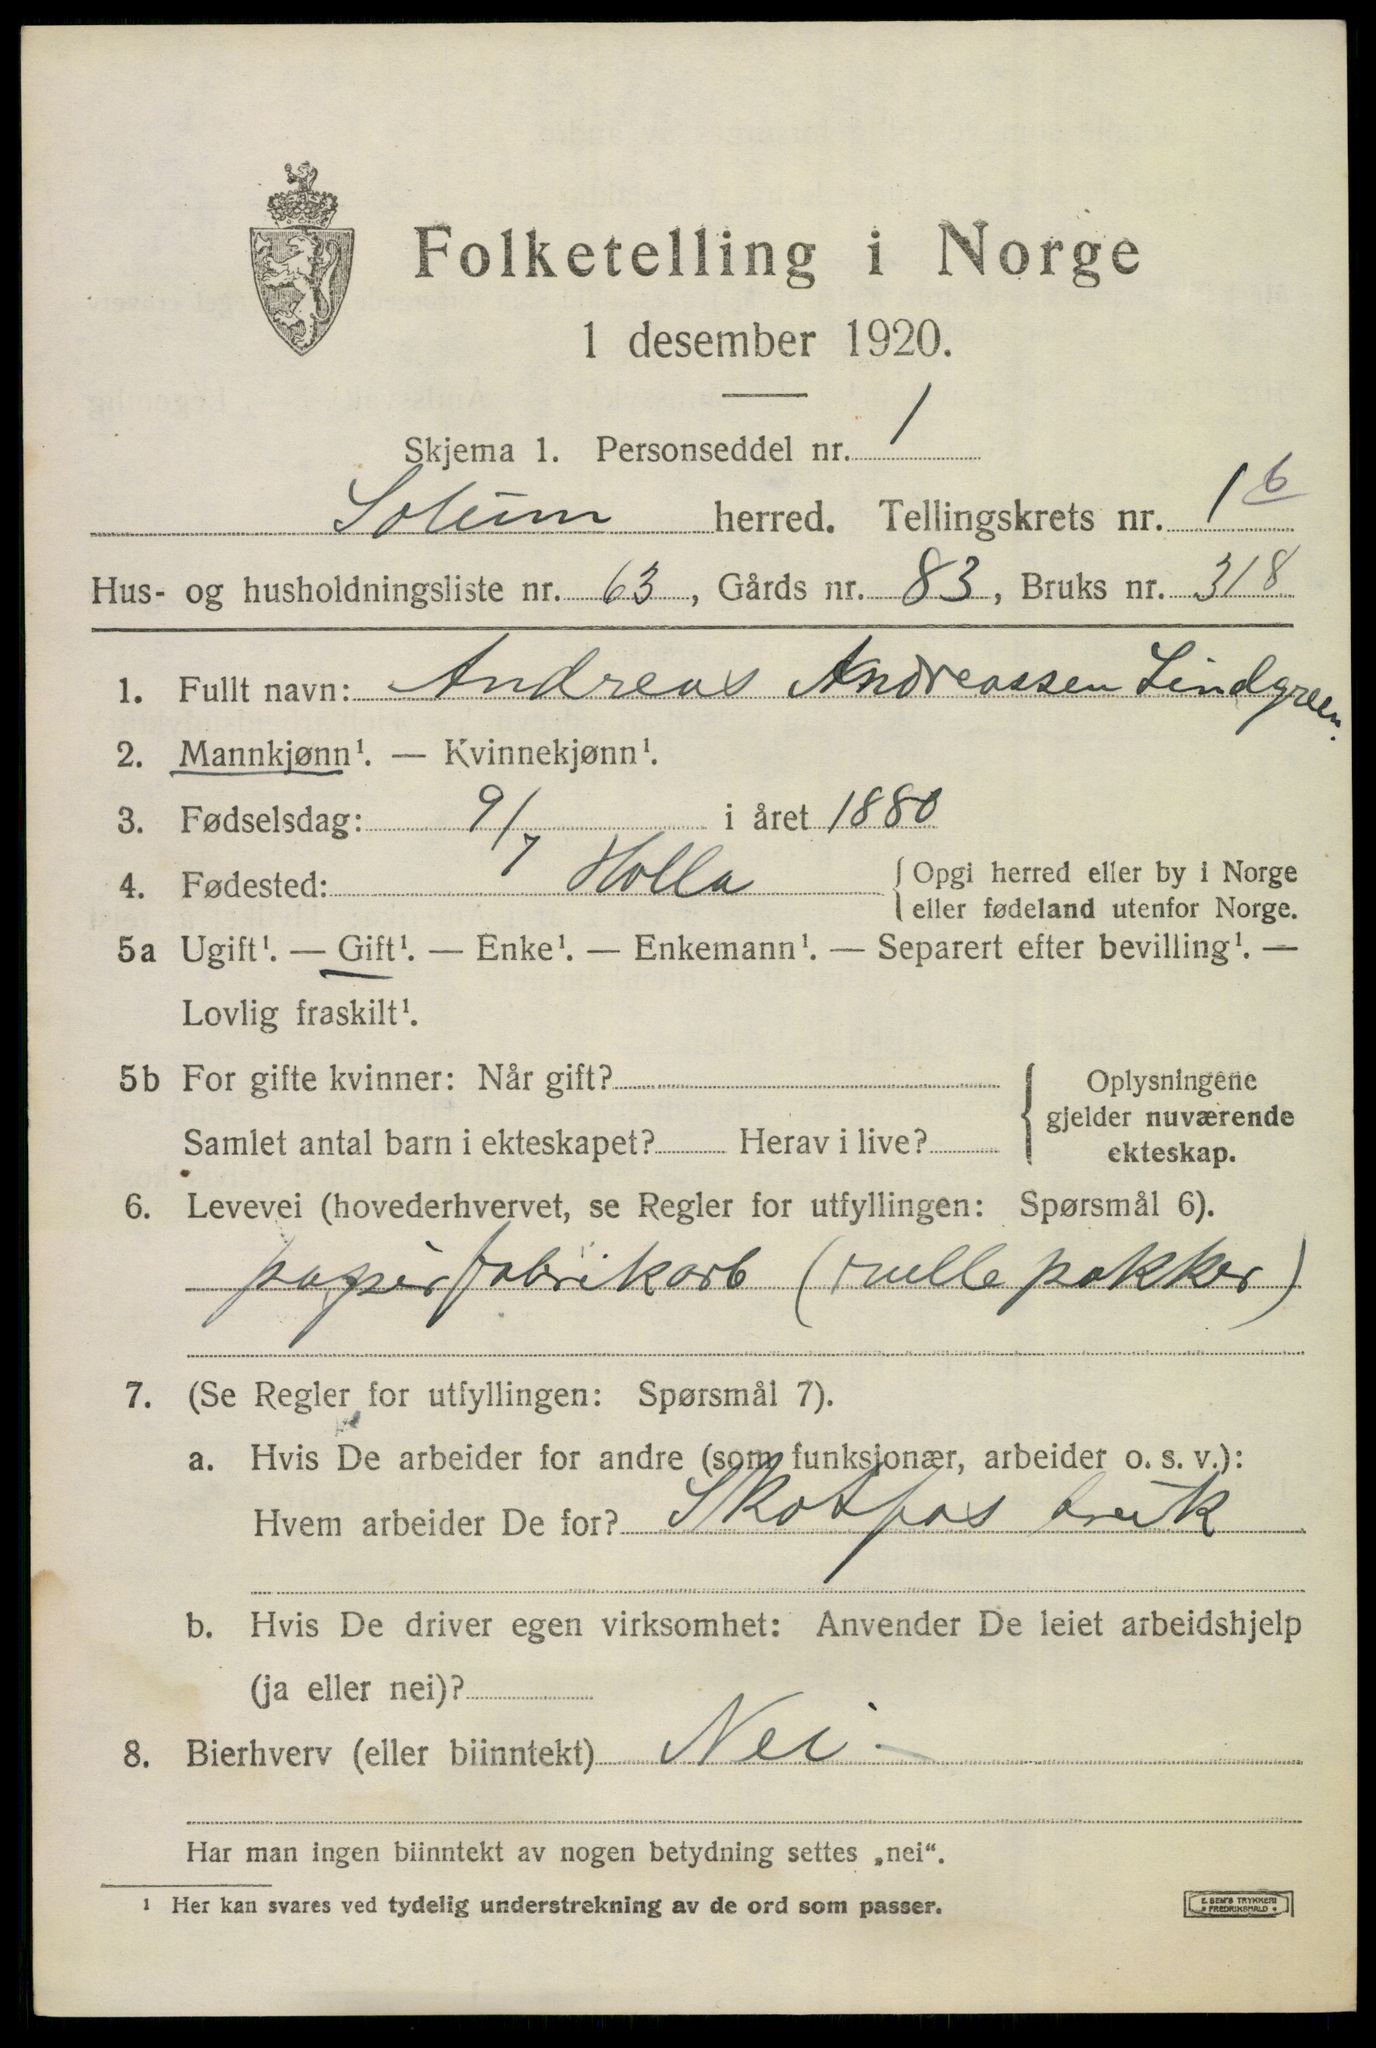 Folketelling i Norge
1 desember 1920.
Skjema 1. Personseddel nr. 1
Solum herred. Tellingskrets nr. 1 6
Hus- og husholdningsliste nr. 63, Gårds nr. 83, Bruks nr. 318
1. Fullt navn: Andreas Andreassen Lindgreen.
2. Mannkjønn¹. — Kvinnekjønn¹.
3. Fødselsdag: 9/7 i året 1880
4. Fødested: Holla { Opgi herred eller by i Norge
eller fødeland utenfor Norge.
5a Ugift¹. — Gift¹. — Enke¹. — Enkemann¹. — Separert efter bevilling¹. —
Lovlig fraskilt¹.
5b For gifte kvinner: Når gift? { Oplysningene
gjelder nuværende
Samlet antal barn i ekteskapet? Herav i live?
ekteskap.
6. Levevei (hovederhvervet, se Regler for utfyllingen: Spørsmål 6).
papirfabrikarb (rulle pakker)
7. (Se Regler for utfyllingen: Spørsmål 7).
a. Hvis De arbeider for andre (som funksjonær, arbeider o. s. v.):
Hvem arbeider De for? Skotfos bruk
b. Hvis De driver egen virksomhet: Anvender De leiet arbeidshjelp
(ja eller nei)?
8. Bierhverv (eller biinntekt) Nei -
Har man ingen biinntekt av nogen betydning settes „nei“.
¹ Her kan svares ved tydelig understrekning av de ord som passer.
E. SEM'S TRYKKERI
• FREDRIKSHALD •